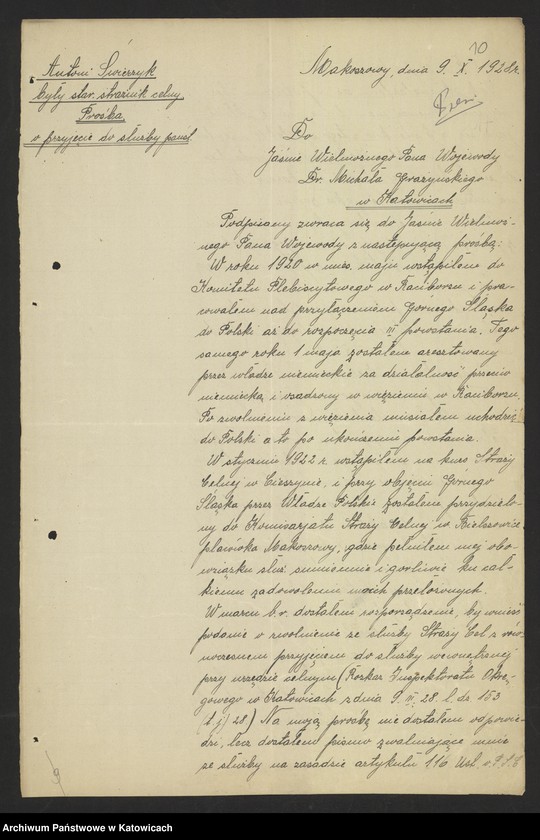 10
Antoni Świerzyk
były star. strażnik celny.
Prośba
o przyjęcie do służby państ
Makoszowy, dnia 9. X. 1928 r.
Do
Jaśnie Wielmożnego Pana Wojewody
Dr. Michała Grażyńskiego
w Katowicach
Podpisany zwraca się do Jaśnie Wielmoż-
nego Pana Wojewody z następującą prośbą:
W roku 1920 w mies. maju wstąpiłem do
Komitetu Plebiscytowego w Raciborzu i pra-
cowałem nad przyłączeniem Górnego Śląska
do Polski aż do rozpoczęcia III powstania. Tego
samego roku 1 maja zostałem aresztowany
przez władze niemieckie za działalność przeciw
niemiecką, i wsadzony w więzienie w Raciborzu.
Po zwolnieniu z więzienia musiałem uchodzić
do Polski a to po ukończeniu powstania.
W styczniu 1922 r. wstąpiłem na kurs Straży
Celnej w Cieszynie, i przy objęciu Górnego
Śląska przez Władze Polskie zostałem przydzielo-
ny do Komisarjatu Straży Celnej w Bielszowice
placówka Makoszowy, gdzie pełniłem mej obo-
wiązku służ. sumiennie i gorliwie ku cał-
kiemu zadowoleniu moich przełożonych.
W marcu b.r. dostałem rozporządzenie, by wnieść
podanie o zwolnienie ze służby Straży Cel. z rów-
noczesnem przyjęciem do służby wewnętrznej
przy urzędzie celnym (Rozkaz Inspektoratu Okrę-
gowego w Katowicach z dnia 9. III. 28. l. dz. 153
(t.j) 28) Na moją prośbę nie dostałem odpowie-
dzi, lecz dostałem pismo zwalniające mnie
ze służby na zasadzie artykułu 116 Ust. o P.S.C
9
Archiwum Państwowe w Katowicach